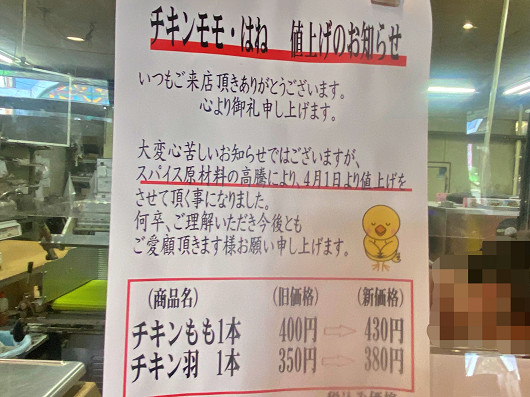 チキンモモ・はね 値上げのお知らせ
いつもご来店頂きありがとうございます。
心より御礼申し上げます。
大変心苦しいお知らせではございますが、
スパイス原材料の高騰により、4月1日より値上げを
させて頂く事になりました。
何卒、ご理解いただき今後とも
ご愛顧頂きます様お願い申し上げます。
(商品名) (旧価格) (新価格)
チキンもも1本 400円 ⇨ 430円
チキン羽 1本 350円 ⇨ 380円